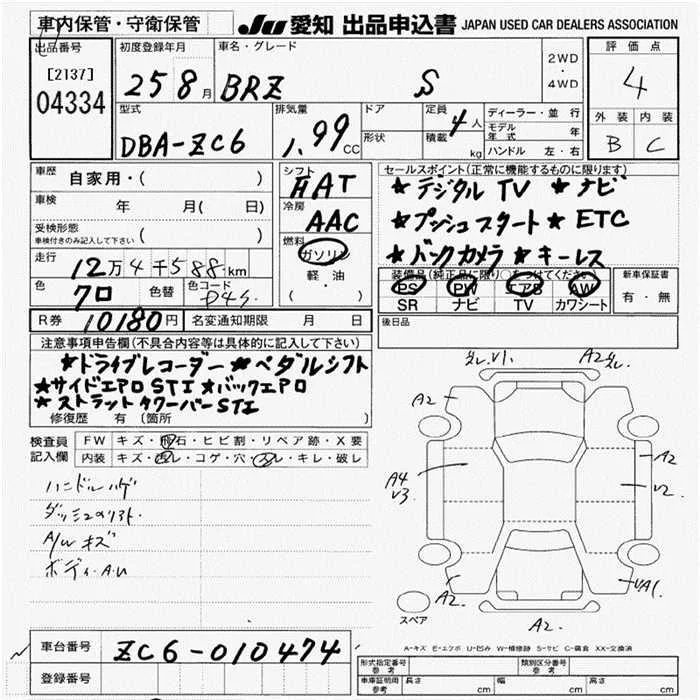 車内保管・守衛保管
JU 愛知 出品申込書 JAPAN USED CAR DEALERS ASSOCIATION
出品番号
[2137]
04334
初度登録年月
25 8月
車名・グレード
BRZ S
2WD
・
4WD
評価点
4
外装 内装
B C
型式
DBA-ZC6
排気量
1.99CC
ドア
形状
定員 4人
積載 kg
ディーラー・並行
モデル年式 年
ハンドル 左・右
車歴 自家用・( )
車検 年 月( 日)
受検形態
車検付きのみ記入して下さい ( )
走行 12万4千588km
色 クロ 色替 色コード D4S
シフト
FAT
冷房
AAC
燃料
ガソリン
軽・油
( ・ )
セールスポイント(正常に機能するものに限ります)
★デジタルTV ★ナビ
★プッシュスタート★ETC
★バックカメラ★キーレス
装備品(純正品に限り○をつけてください)
PS PW エアB AW
SR ナビ TV カワシート
新車保証書
有・無
R券 10180円 名変通知期限 月 日
後日品
注意事項申告欄(不具合内容等は具体的に記入して下さい)
★ドライブレコーダー★ペダルシフト
★サイドエアロSTI★バックエアロ
★ストラットタワーバーSTI
修復歴 有 〔箇所 〕
検査員
記入欄
FW キズ・飛石・ヒビ割・リペア跡・X要
内装 キズ・コゲ・穴・キレ・破レ
ハンドルハゲ
A/Wキズ
V1. A2
A2
A4
V3
A2
V2
A2.
A2.
スペア
A-キズ E-エクボ U-凹み W-補修跡 S-サビ C-腐食 XX-交換済
車台番号 ZC6-010474
登録番号
形式指定番号
参考
類別区分番号
参考
車庫証明用
参考
長さ cm 幅 cm 高さ cm